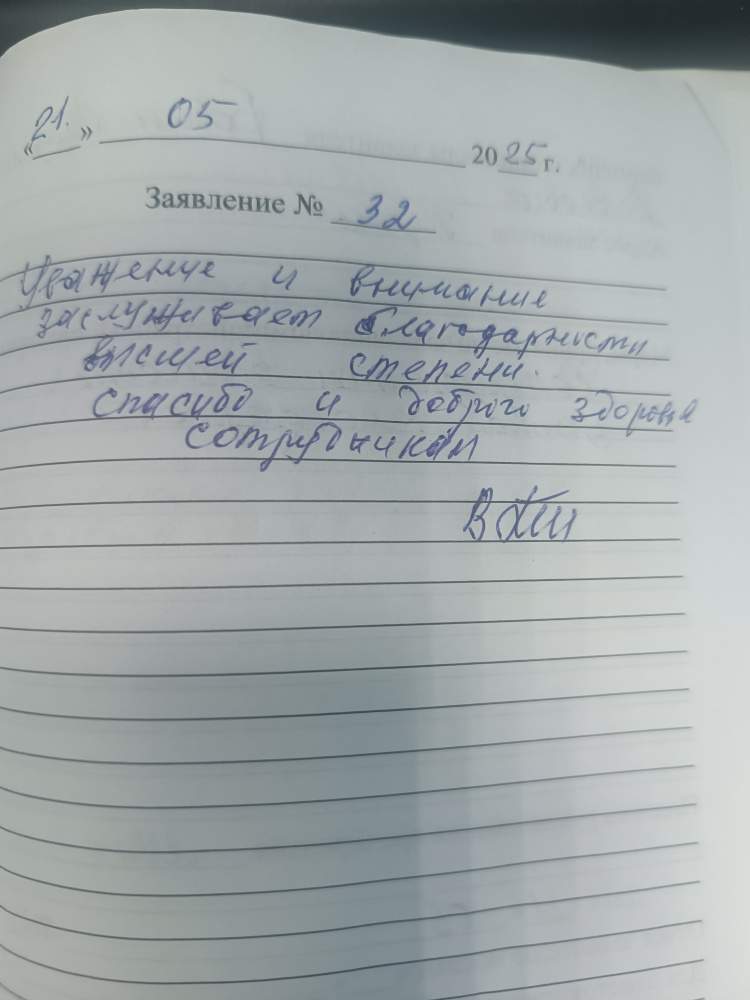 «21.» 05 2025 г.
Заявление № 32
Уважение и внимание
заслуживает благодарности
высшей степени.
Спасибо и доброго здоровья
сотрудникам